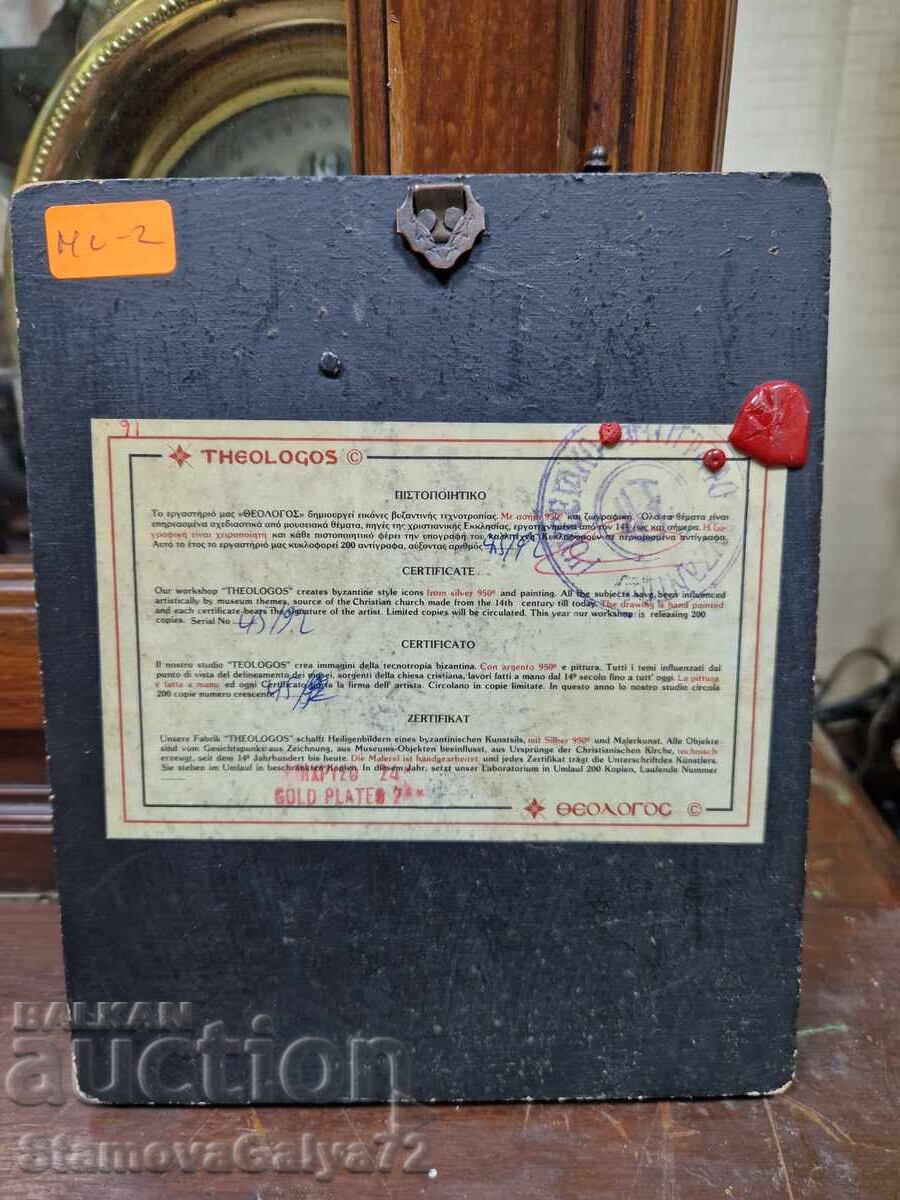 МС-2
91
THEOLOGOS ©
ΠΙΣΤΟΠΟΙΗΤΙΚΟ
Το εργαστήριό μας «ΘΕΟΛΟΓΟΣ» δημιουργεί εικόνες βυζαντινής τεχνοτροπίας. Με ασήμι 950º και ζωγραφική. Όλα τα θέματα είναι
επηρεασμένα σχεδιαστικά από μουσειακά θέματα, πηγές της χριστιανικής Εκκλησίας, εργοτεχνημένα από τον 14º έως και σήμερα. Η ζω-
γραφική είναι χειροποίητη και κάθε πιστοποιητικό φέρει την υπογραφή του καλλιτέχνη. Κυκλοφορούν σε περιορισμένα αντίγραφα.
Αυτό το έτος το εργαστήριό μας κυκλοφορεί 200 αντίγραφα, αύξοντας αριθμός 45/92
CERTIFICATE
Our workshop "THEOLOGOS" creates byzantine style icons from silver 950º and painting. All the subjects have been influenced
artistically by museum themes, source of the Christian church made from the 14th century till today. The drawing is hand painted
and each certificate bears the signature of the artist. Limited copies will be circulated. This year our workshop is releasing 200
copies. Serial No 45/92
CERTIFICATO
Il nostro studio "TEOLOGOS" crea immagini della tecnotropia bizantina. Con argento 950º e pittura. Tutti i temi influenzati dal
punto di vista del delineamento dei musei, sorgenti della chiesa cristiana, lavori fatti a mano dal 14º secolo fino a tutt' oggi. La pittura
e fatta a mano ed ogni Certificato porta la firma dell' artista. Circolano in copie limitate. In questo anno lo nostro studio circola
200 copie numero crescente 45/92
ZERTIFIKAT
Unsere Fabrik "THEOLOGOS" schafft Heiligenbildern eines byzantinischen Kunstsils, mit Silber 950º und Malerkunst. Alle Objekte
sind vom Gesichtspunkte aus Zeichnung, aus Museums-Objekten beeinflusst, aus Ursprünge der Christianischen Kirche, technisch
erzeugt, seit dem 14º Jahrhundert bis heute. Die Malerei ist handgearbeitet und jedes Zertifikat trägt die Unterschriftdes Künstlers.
Sie stehen im Umlauf in beschränkten Kopien. In diesem Jahr, setzt unser Laboratorium in Umlauf 200 Kopien, Laufende Nummer
24
GOLD PLATED
ΘΕΟΛΟΓΟΣ ©
BALKAN
auction
StamovaGalya72